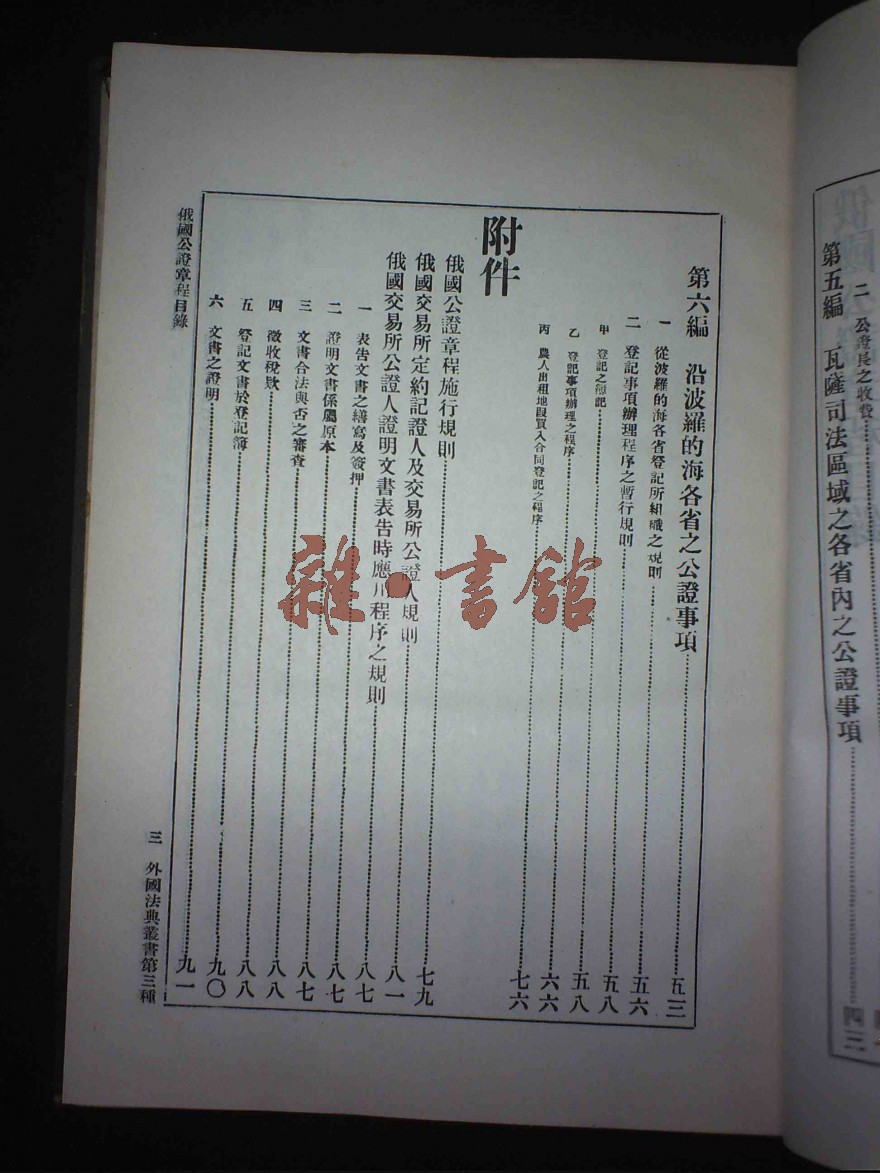 二 公證長之收費
第五編 瓦薩司法區域之各省內之公證事項 四三
第六編 沿波羅的海各省之公證事項 五三
一 從波羅的海各省登記所組織之規則 五六
二 登記事項辦理程序之暫行規則 五八
甲 登記之 記 五八
乙 登記事項辦理之程序 六六
丙 農人出租地段買入合同登記之程序 七六
附件
俄國公證章程施行規則 七九
俄國交易所定約記證人及交易所公證人規則 八一
俄國交易所公證人證明文書表告時應用程序之規則 八七
一 表告文書之繕寫及簽押 八七
二 證明文書係屬原本 八七
三 文書合法與否之審查 八八
四 徵收稅欵 八八
五 登記文書於登記簿 九〇
六 文書之證明 九一
俄國公證章程目錄
三 外國法典叢書第三種
雜·書館